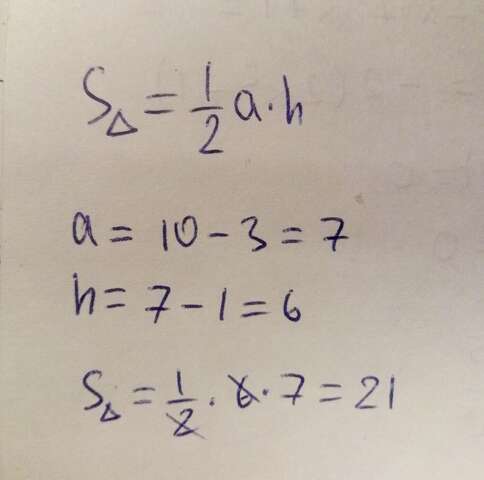 S△ = 1/2 a · h
a = 10 - 3 = 7
h = 7 - 1 = 6
S△ = 1/2 · 6 · 7 = 21